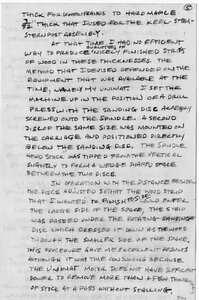 THICK FOR UNDERLAYMENT TO HARD MAPLE
3/32 THICK THAT I USED FOR THE KEEL STEM-
STERNPOST ASSEMBLY.
AT THAT TIME I HAD NO EFFICIENT
WAY TO PRODUCE QUANTITIES OF NICELY FINISHED STRIPS
OF WOOD IN THESE THICKNESSES. THE
METHOD THAT I DEVISED DEPENDED ON THE
EQUIPMENT THAT WAS AVAILABLE AT THE
TIME, NAMELY MY UNIMAT. I SET THE
MACHINE UP IN THE POSITION OF A DRILL
PRESS WITH THE SANDING DISC ALREADY
SCREWED ONTO THE SPINDLE. A SECOND
DISC OF THE SAME SIZE WAS MOUNTED ON
THE CARRIAGE AND POSITIONED DIRECTLY
BELOW THE SANDING DISC. THE SPINDLE
HEAD STOCK WAS TIPPED FROM THE VERTICAL
SLIGHTLY TO FORM A WEDGE SHAPED SPACE
BETWEEN THE TWO DISCS.
IN OPERATION WITH THE DISTANCE BETWEEN
THE DISCS ADJUSTED SO THAT THE WOOD STRIP
THAT I WANTED TO FINISH COULD ENTER
THE LARGE SIDE OF THE SPACE, THE STRIP
WAS PASSED UNDER THE ROTATING SANDING
DISC WHICH DRESSED IT DOWN AS THE WOOD
THROUGH THE SMALLER SIDE OF THE SPACE.
THIS PROCEDURE GAVE EXCELLENT RESULTS
ALTHOUGH IT WAS TIME CONSUMING BECAUSE
THE UNIMAT MOTOR DOES NOT HAVE SUFFICIENT
POWER TO REMOVE MORE THAN A FEW THOUS
OF STOCK AT A PASS WITHOUT STALLING.